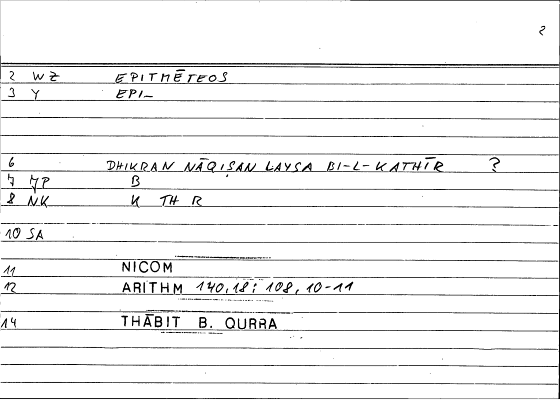 2
2 WZ EPITMĒTEOS
3 Y EPI_
6 DHIKRAN NĀQIṢAN LAYSA BI-L-KATHĪR ?
7 JP B
8 NK K TH R
10 SA
11 NICOM
12 ARITHM 140,18; 108, 10-11
14 THĀBIT B. QURRA